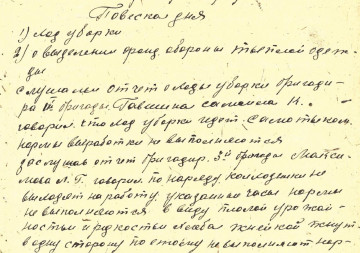 Повестка дня
1) Ход уборки
2) о выделении фонд обороны теплой одеж-
ды
слушали отчет о ходе уборки бригади-
ра бригады.
говорил, что ход уборки идет самотыком.
нормы выработки не выполняются
заслушав отчет бригадир. 3й бригады Макси-
мова Л. Г. говорил по наряду колхозники не
выходят на работу указанной часы нормы
не выполняются в виду плохой урожай-
ностью и редкостью хлеба жнейкой жнут
в одну сторону по этому не выполняют нор-